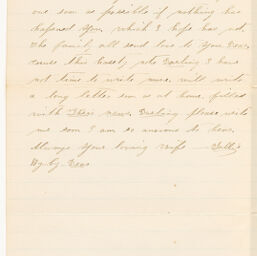 one soon as possible if nothing has
happened you, which I hope has not.
The family all send love to you Dear,
excuse this haste, note Darling I have
not time to write more, will write
a long letter soon as at home, filled
with news. Darling please write
me soon I am so anxious to hear.
Always your loving wife — Tillie
By-by Dear